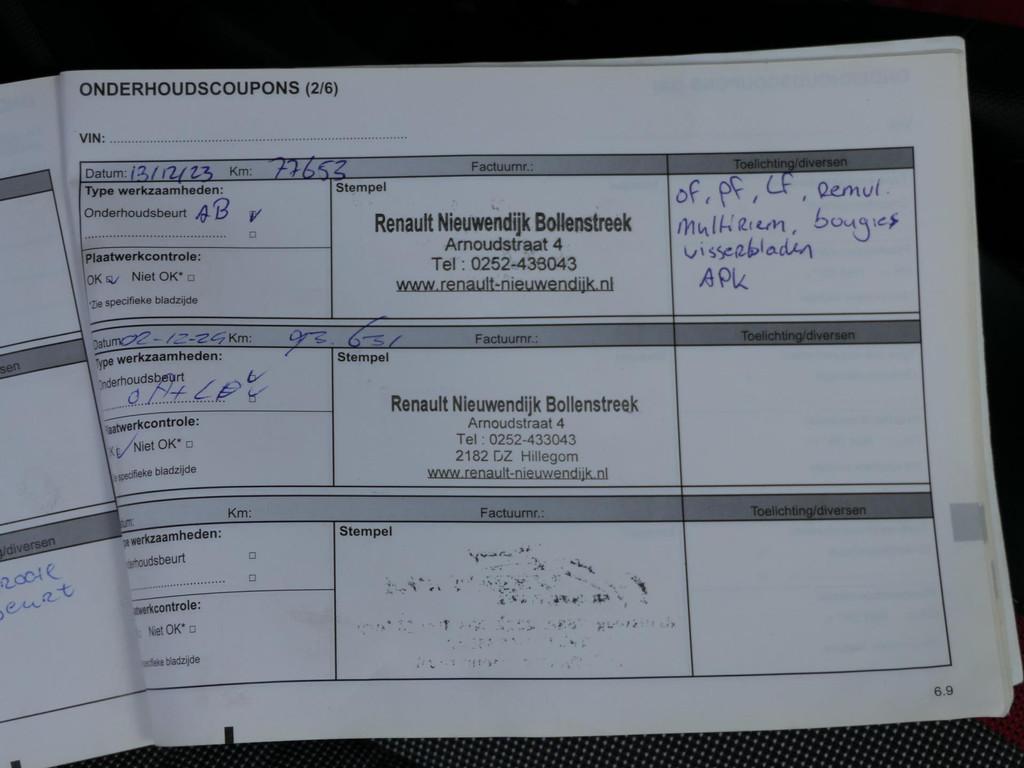 ONDERHOUDSCOUPONS (2/6)
VIN:
Datum: 13/12/23 Km: 77653 Factuurnr.: Toelichting/diversen
Type werkzaamheden:
Onderhoudsbeurt AB
Plaatwerkcontrole:
OK Niet OK*
*Zie specifieke bladzijde
Stempel
Renault Nieuwendijk Bollenstreek
Arnoudstraat 4
Tel : 0252-433043
www.renault-nieuwendijk.nl
of, pf, Lf, Remul.
multiriem, bougies
visserbladen
APK
Datum 02-12-24 Km: 93.651 Factuurnr.: Toelichting/diversen
Type werkzaamheden:
Onderhoudsbeurt
Plaatwerkcontrole:
Niet OK*
specifieke bladzijde
Stempel
Renault Nieuwendijk Bollenstreek
Arnoudstraat 4
Tel : 0252-433043
2182 DZ Hillegom
www.renault-nieuwendijk.nl
um: Km: Factuurnr.: Toelichting/diversen
pe werkzaamheden:
erhoudsbeurt
atwerkcontrole:
Niet OK*
ecifieke bladzijde
Stempel
6.9
sen
g/diversen
rooie
beurt